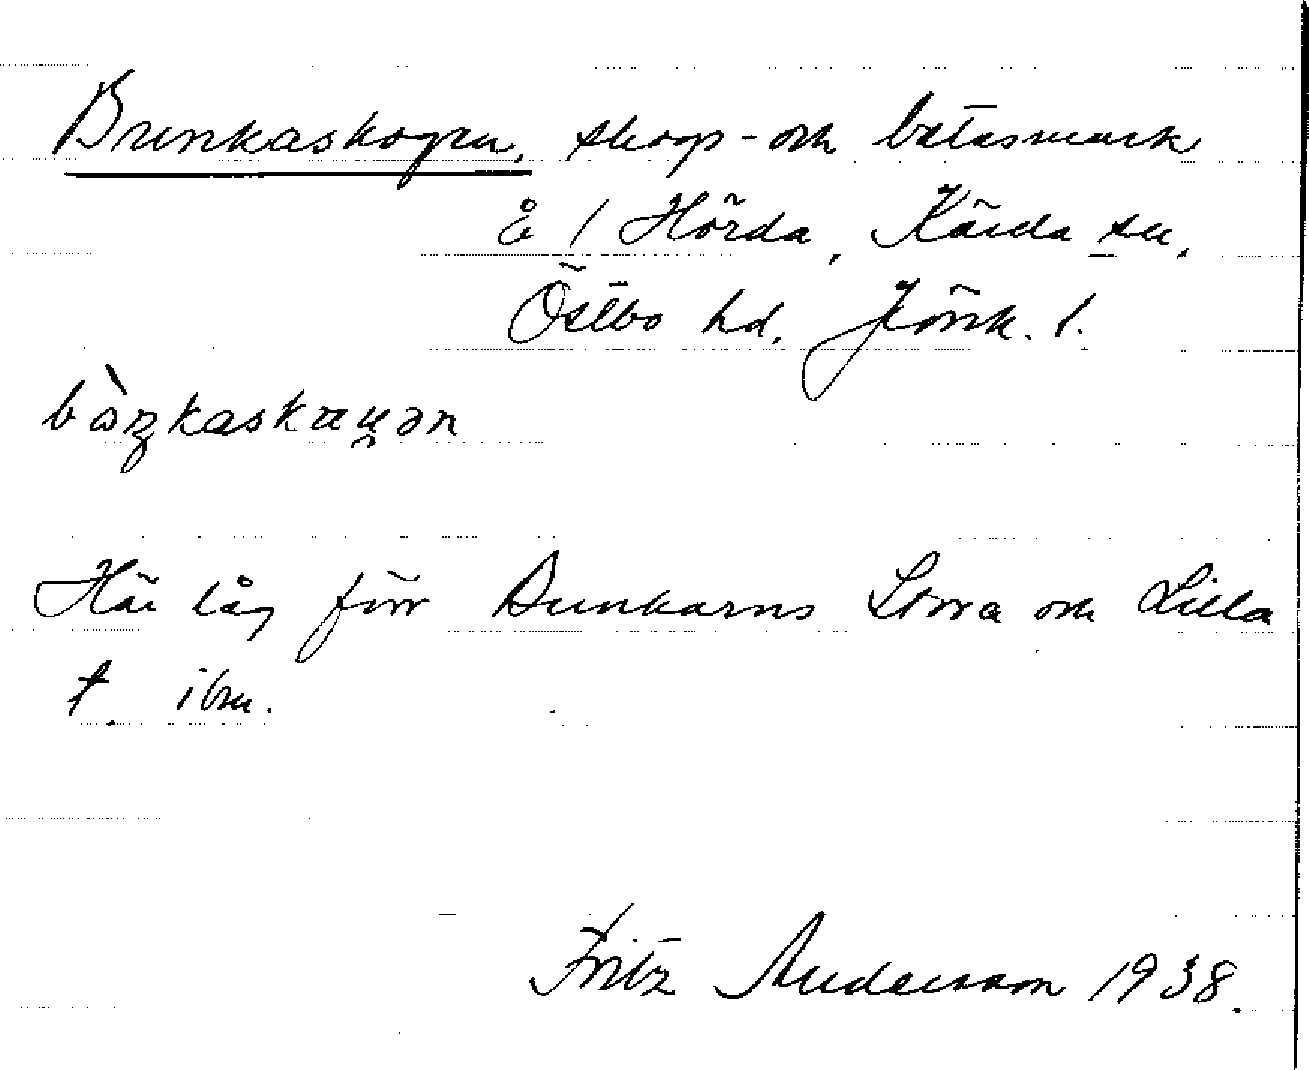 Brunkaskogen, skogs- och betesmark
å 1 Hörda, Kärda sn,
Östbo hd, Jönk. l.
Här låg förr Bunkarns Storra och Lilla
t. ibm.
Fritz Andersson 1938.